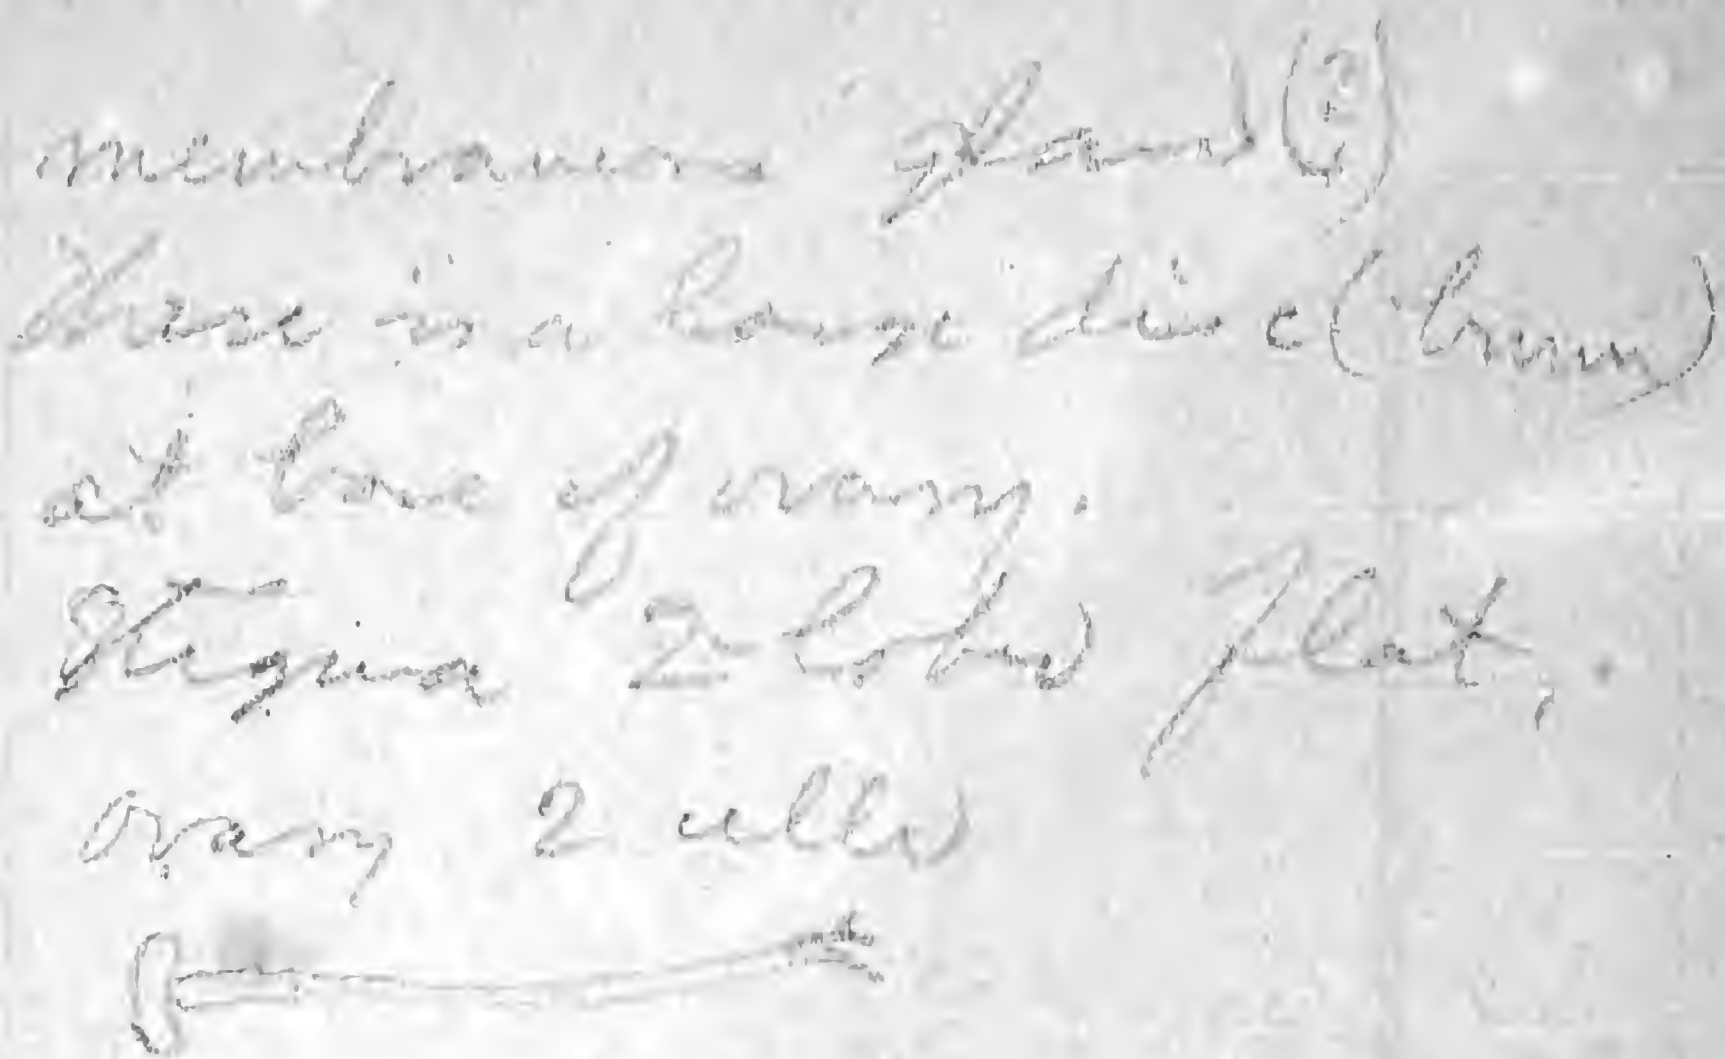 membranous gland (?)
There is a large disc (brown)
at base of ovary.
Stigma 2 lobes flat,
Ovary 2 cells